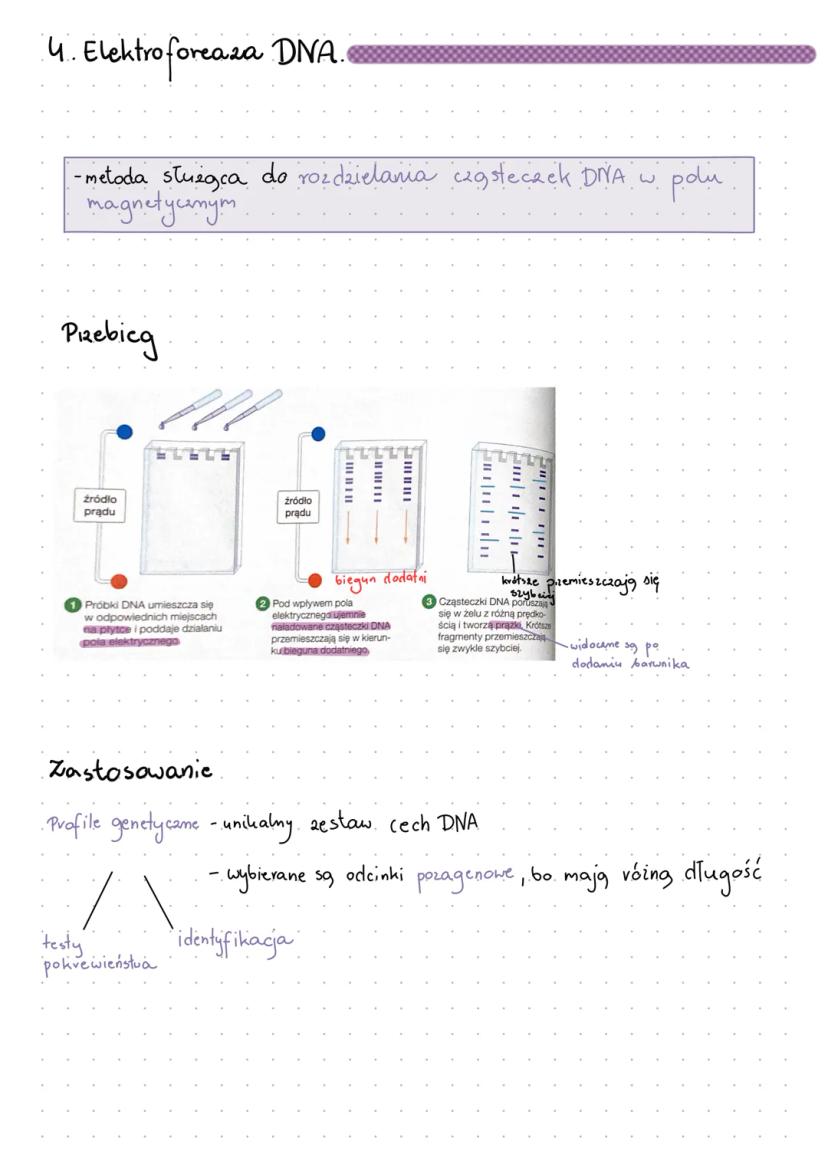 4. Elektroforeaza DNA.
-metoda służąca do rozdzielania cząsteczek DNA w polu
magnetycznym
Przebieg
źródło
prądu
źródło
prądu
biegun dodatni
krótsze przemieszczają się
szybciej
1 Próbki DNA umieszcza się
w odpowiednich miejscach
na płytce i poddaje działaniu
pola elektrycznego.
2 Pod wpływem pola
elektrycznego ujemnie
naładowane cząsteczki DNA
przemieszczają się w kierun-
ku bieguna dodatniego.
3 Cząsteczki DNA poruszają
się w żelu z różną prędko-
ścią i tworzą prążki. Krótsze
fragmenty przemieszczają
się zwykle szybciej.
widoczne są po
dodaniu barwnika
Zastosowanie
Profile genetyczne - unikalny zestaw cech DNA
- wybierane są odcinki pozagenowe, bo mają różną długość
testy
pokrewieństwa
identyfikacja